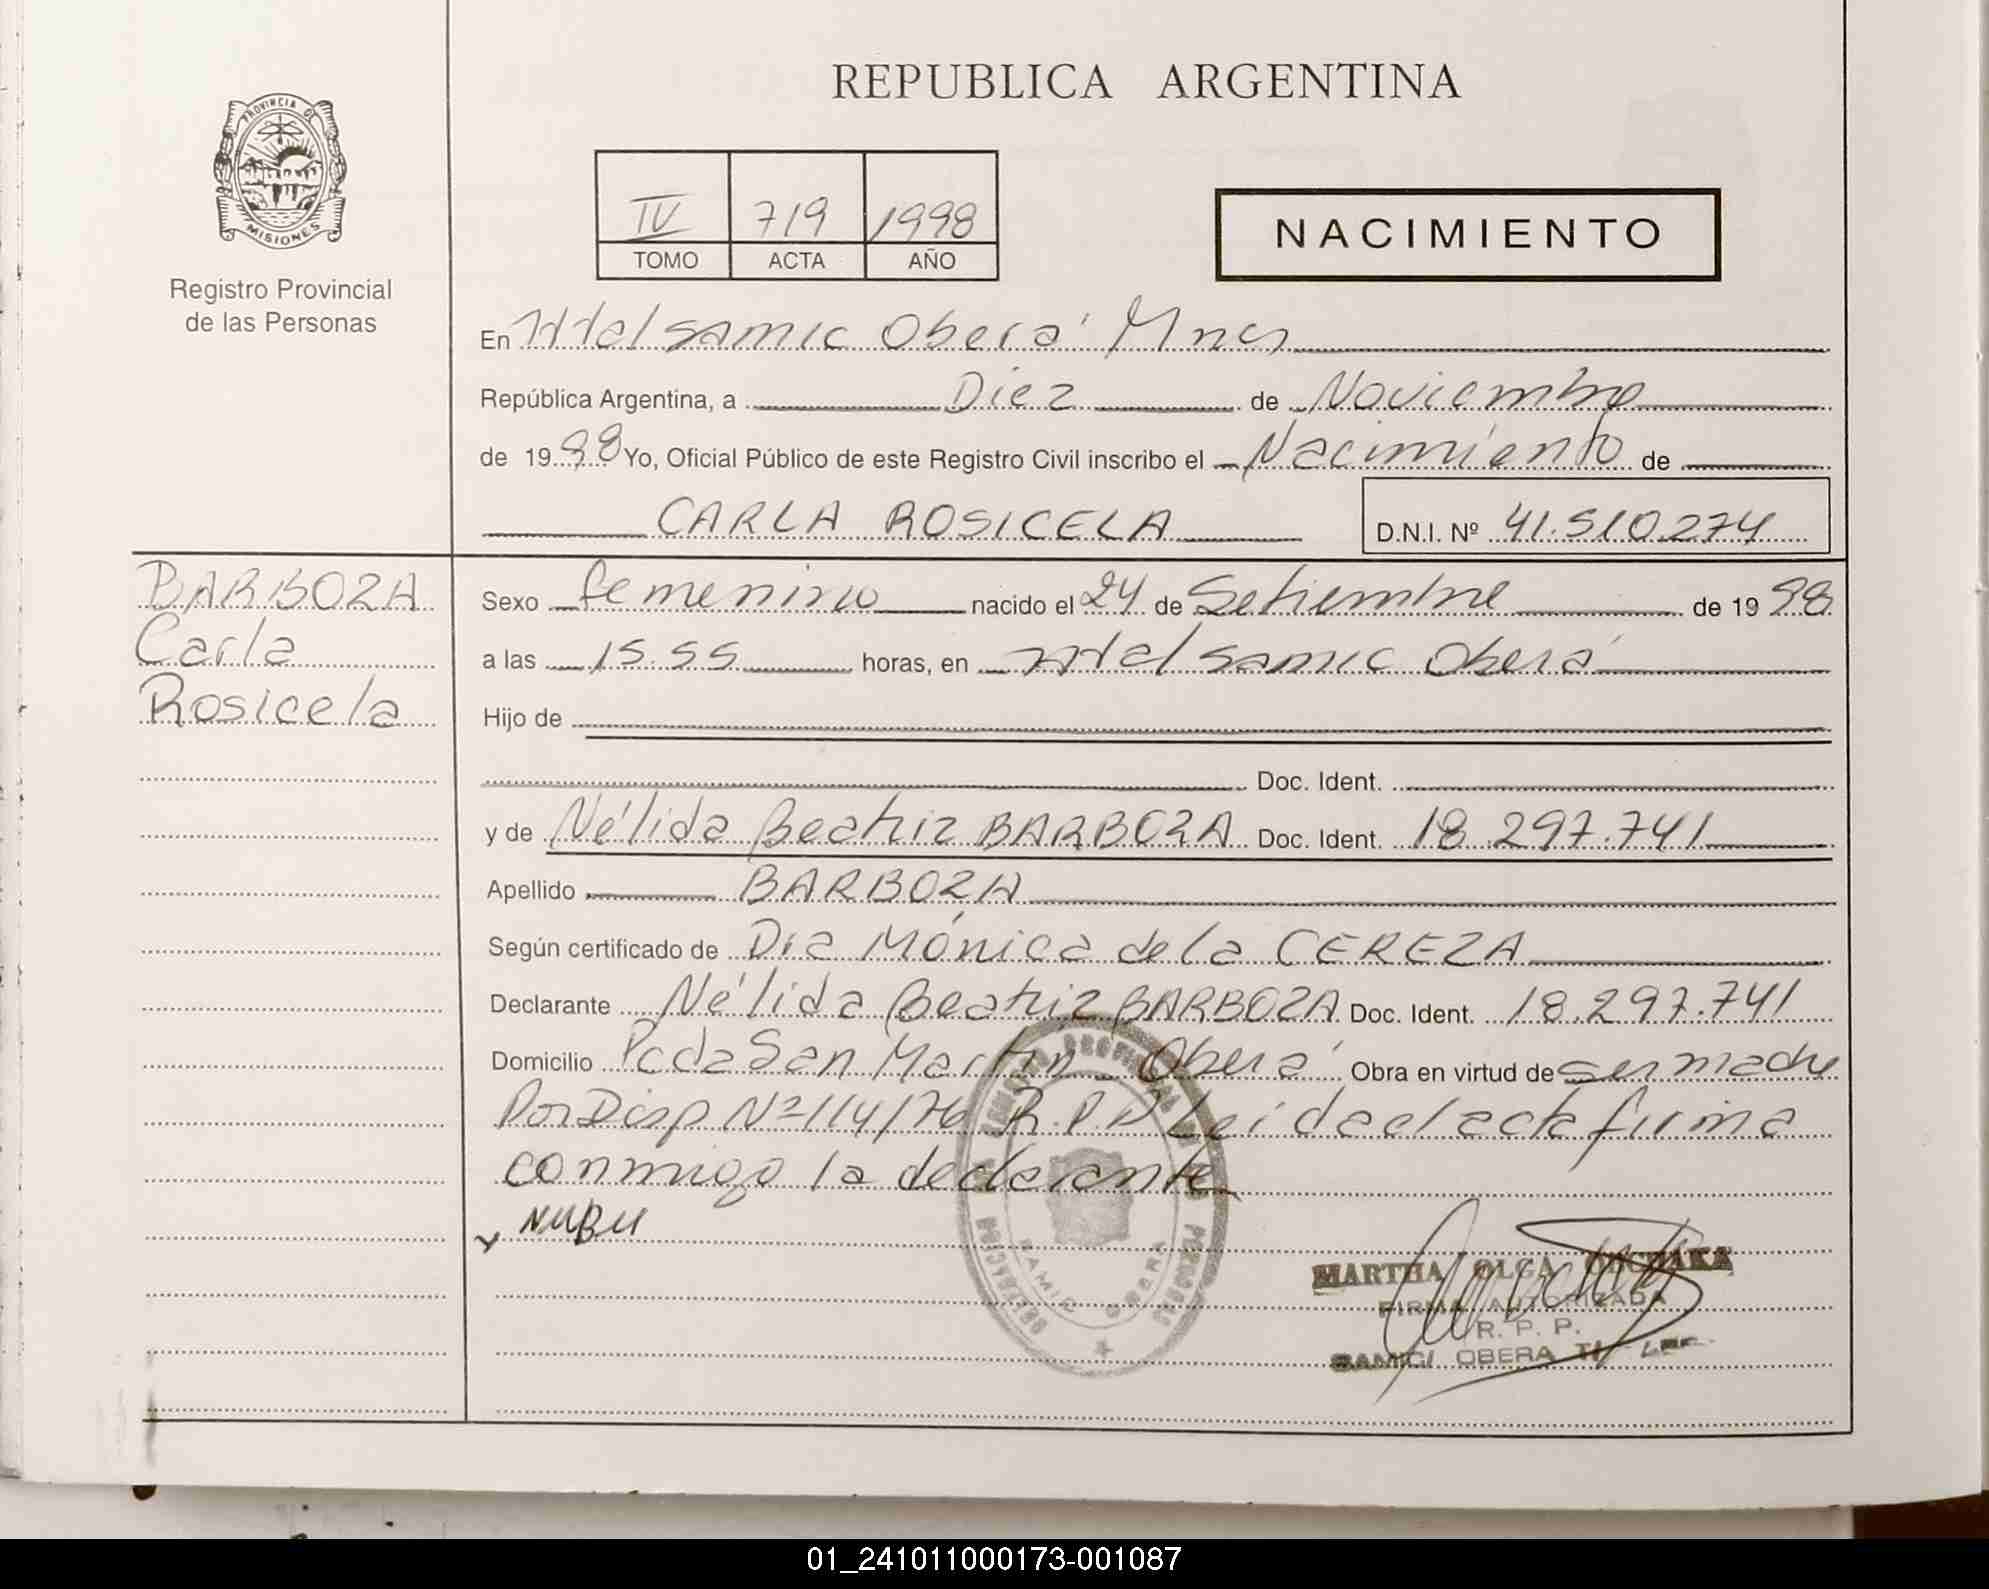 REPUBLICA ARGENTINA
PROVINCIA DE
MISIONES
Registro Provincial
de las Personas
IV 719 1998
TOMO ACTA AÑO
NACIMIENTO
En Htal Samic Oberá Mnes
República Argentina, a Diez de Noviembre
de 1998 Yo, Oficial Público de este Registro Civil inscribo el Nacimiento de
CARLA ROSICELA D.N.I. Nº 41.510.274
BARBOZA
Carla
Rosicela
Sexo femenino nacido el 24 de Setiembre de 1998
a las 15.55 horas, en Htal Samic Oberá
Hijo de
Doc. Ident.
y de Nélida Beatriz BARBOZA Doc. Ident. 18.297.741
Apellido BARBOZA
Según certificado de Dra Mónica de la CEREZA
Declarante Nélida Beatriz BARBOZA Doc. Ident. 18.297.741
Domicilio Pcda San Martín Oberá Obra en virtud de ser madre
Por Disp Nº 114/76 R.P.P Leída el acta firma
conmigo la declarante
NUBU
MARTHA OLGA
FIRMA AUTORIZADA
R. P. P.
SAMIC/ OBERA
01_241011000173-001087